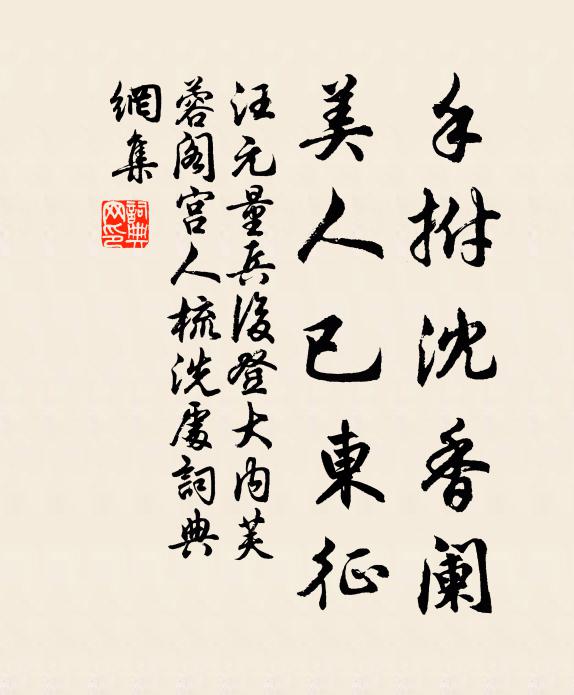 手拊沈香阑
美人已東征
汪元量兵後登大内芙
蓉阁宫人梳洗處詞典
網集
詞典网印